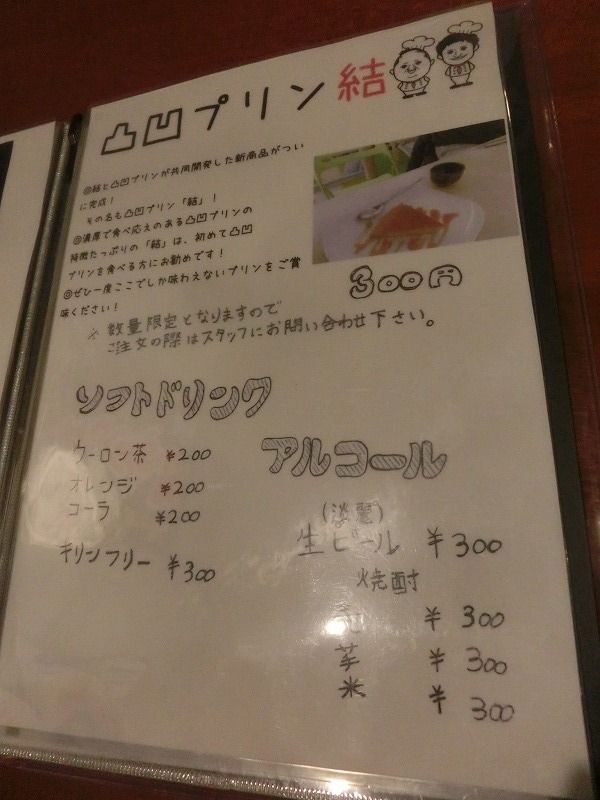 凸凹プリン結
◎結と凸凹プリンが共同開発した新商品がつい
に完成！
その名も凸凹プリン「結」！
◎濃厚で食べ応えのある凸凹プリンの
特徴たっぷりの「結」は、初めて凸凹
プリンを食べる方にお勧めです！
◎ぜひ一度ここでしか味わえないプリンをご賞
味ください！
300円
※ 数量限定となりますので
ご注文の際はスタッフにお問い合わせ下さい。
ソフトドリンク
ウーロン茶 ¥200
オレンジ ¥200
コーラ ¥200
キリンフリー ¥300
アルコール
(淡麗)
生ビール ¥300
焼酎
¥300
芋 ¥300
米 ¥300